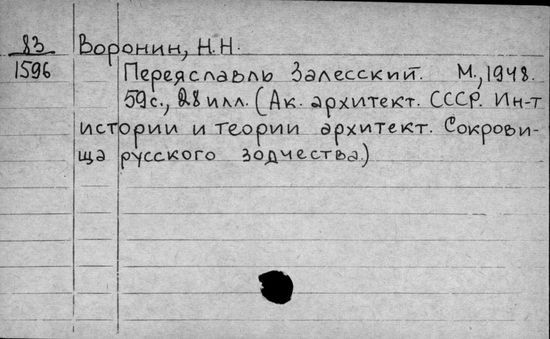 83 Воронин, Н.Н.
1596 Переяславль Залесский. М., 1948.
59с., 28 илл. (Ак. архитект. СССР. Ин-т
истории и теории архитект. Сокрови-
ща русского зодчества.)